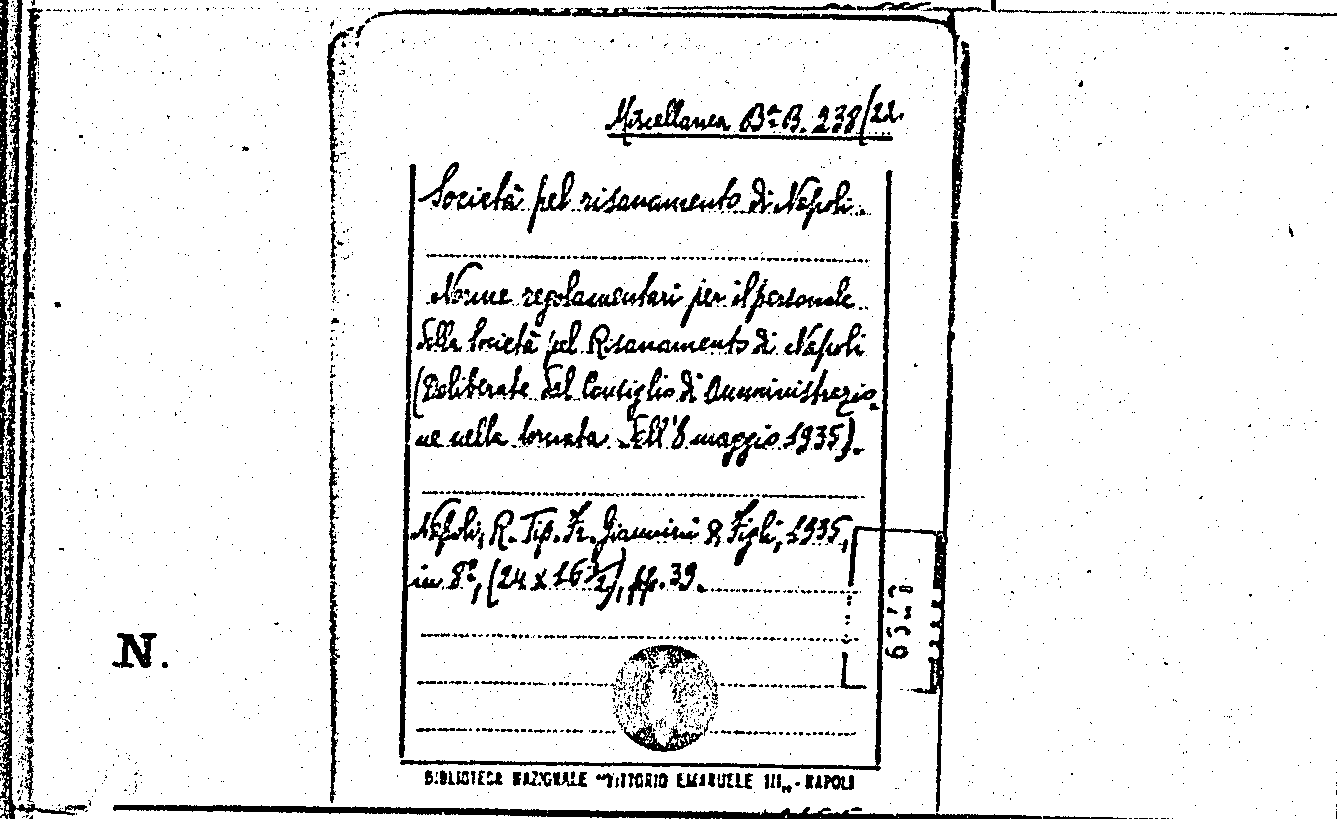 Miscellanea Bª B. 238/22.
Società pel risanamento di Napoli.
Norme regolamentari per il personale
della Società pel Risanamento di Napoli
(Deliberate dal Consiglio di Amministrazio-
ne nella tornata dell'8 maggio 1935).
Napoli, R. Tip. Fr. Giannini & Figli, 1935,
in 8º, (24 x 16 1/2), pp. 39.
N.
BIBLIOTECA NAZIONALE "VITTORIO EMANUELE III„ - NAPOLI